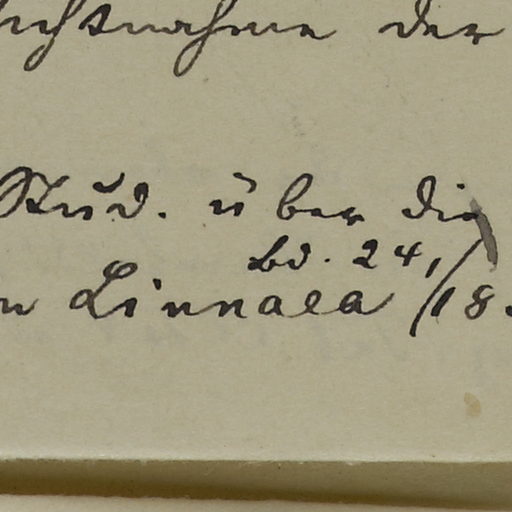 ichtnahme der
Stud. über die
Bd. 24,
in Linnaea /18